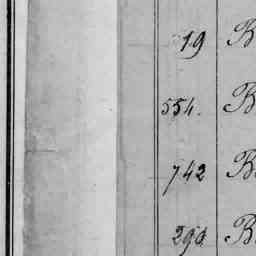 19 B
554. B
742 B
290 B